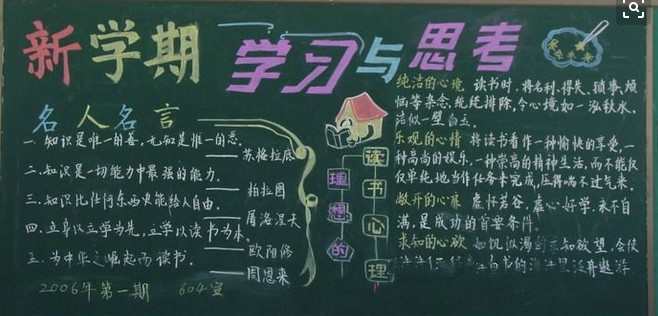 新学期 学习与思考
名人名言
一.知识是唯一的善,无知是唯一的恶.
——苏格拉底
二.知识是一切能力中最强的能力.
——柏拉图
三.知识比任何东西更能给人自由.
——屠洛涅夫
四.立身以立学为先,立学以读书为本.
——欧阳修
五.为中华之崛起而读书.
——周恩来
2006年第一期 604宣
理想的
读书心理
纯洁的心境 读书时,将名利、得失、琐事、烦
恼等杂念,统统排除,令心境如一泓秋水,
洁似一璧白玉.
乐观的心情 将读书看作一种愉快的享受,一
种高尚的娱乐,一种崇高的精神生活,而不能仅
仅单纯地当作任务来完成,压得喘不过气来.
敞开的心扉 虚怀若谷,虚心好学,永不自
满,是成功的首要条件.
求知的心欲 如饥似渴的求知欲望,会使
书的海洋里泛舟遨游